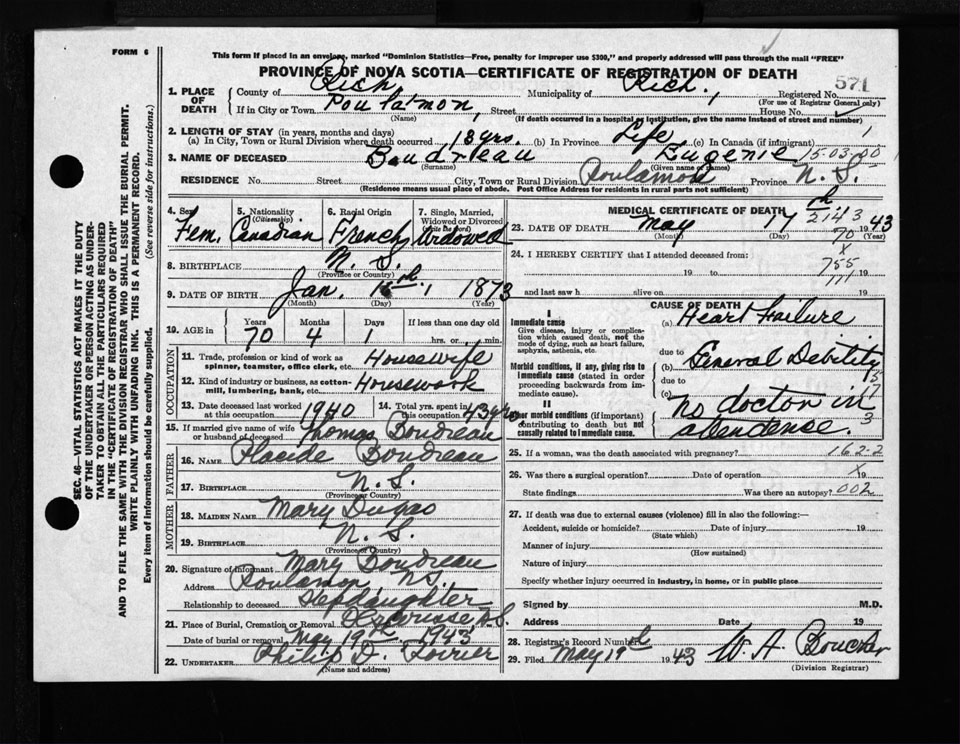 FORM 6
This form if placed in an envelope, marked "Dominion Statistics—Free, penalty for improper use $300," and properly addressed will pass through the mail "FREE"
PROVINCE OF NOVA SCOTIA—CERTIFICATE OF REGISTRATION OF DEATH
571
1. PLACE OF DEATH
County of Rich. Municipality of Rich. Registered No.
(For use of Registrar General only)
If in City or Town Poulamon, Street House No.
(Name) (If death occurred in a hospital or institution, give the name instead of street and number)
2. LENGTH OF STAY (in years, months and days)
(a) In City, Town or Rural Division where death occurred 13 yrs. (b) In Province Life (c) In Canada (if immigrant)
3. NAME OF DECEASED Boudreau Eugenie 15-03-00
(Surname) (Given name or names)
RESIDENCE No. Street City, Town or Rural Division Poulamon Province N. S.
(Residence means usual place of abode. Post Office Address for residents in rural parts not sufficient)
4. Sex Fem.
5. Nationality (Citizenship) Canadian
6. Racial Origin French
7. Single, Married, Widowed or Divorced (write the word) Widowed
8. BIRTHPLACE N. S.
(Province or Country)
9. DATE OF BIRTH Jan. 1873
(Month) (Day) (Year)
10. AGE in Years Months Days If less than one day old
70 4 1 hrs. or min.
OCCUPATION
11. Trade, profession or kind of work as spinner, teamster, office clerk, etc. Housewife
12. Kind of industry or business, as cotton-mill, lumbering, bank, etc. Housework
13. Date deceased last worked at this occupation 1940
14. Total yrs. spent in this occupation 43 yrs
15. If married give name of wife or husband of deceased Thomas Boudreau
FATHER
16. Name Placide Boudreau
17. Birthplace N. S.
(Province or Country)
MOTHER
18. Maiden Name Mary Dugas
19. Birthplace N. S.
(Province or Country)
20. Signature of informant Mary Boudreau
Address Poulamon N.S.
Relationship to deceased Stepdaughter
21. Place of Burial, Cremation or Removal N.S.
Date of burial or removal May 19th 1943
22. UNDERTAKER Philip D. Poirier
(Name and address)
MEDICAL CERTIFICATE OF DEATH
23. DATE OF DEATH May 17th 1943
(Month) (Day) (Year)
2143
70
24. I HEREBY CERTIFY that I attended deceased from:
19 to 19
X
755
771
and last saw h alive on 19
CAUSE OF DEATH
I
Immediate cause
Give disease, injury or complication which caused death, not the mode of dying, such as heart failure, asphyxia, asthenia, etc.
(a) Heart Failure
due to
Morbid conditions, if any, giving rise to immediate cause (stated in order proceeding backwards from immediate cause).
(b) General Debility
due to
(c) No doctor in attendense.
II
Other morbid conditions (if important) contributing to death but not causally related to immediate cause.
25. If a woman, was the death associated with pregnancy? 162-2
26. Was there a surgical operation? Date of operation X 19
State findings Was there an autopsy? 002
27. If death was due to external causes (violence) fill in also the following:—
Accident, suicide or homicide? Date of injury 19
(State which)
Manner of injury
(How sustained)
Nature of injury
Specify whether injury occurred in industry, in home, or in public place
Signed by M.D.
Address Date 19
28. Registrar's Record Number
29. Filed May 19 1943 W. A. Boucher
(Division Registrar)
SEC. 46—VITAL STATISTICS ACT MAKES IT THE DUTY
OF THE UNDERTAKER OR PERSON ACTING AS UNDERTAKER
TO OBTAIN ALL THE PARTICULARS REQUIRED
IN THE "CERTIFICATE OF REGISTRATION OF DEATH"
AND TO FILE THE SAME WITH THE DIVISION REGISTRAR WHO SHALL ISSUE THE BURIAL PERMIT.
WRITE PLAINLY WITH UNFADING INK. THIS IS A PERMANENT RECORD.
Every item of information should be carefully supplied. (See reverse side for instructions.)